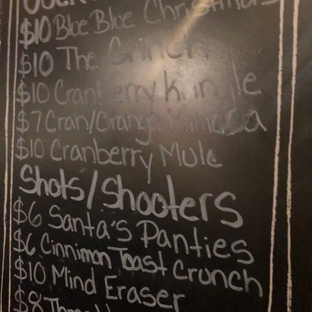 $10 Blue Blue Christmas
$10 The Grinch
$10 Cranberry
$7 Cran/Orange Mimosa
$10 Cranberry Mule
Shots/Shooters
$6 Santa's Panties
$6 Cinnimon Toast Crunch
$10 Mind Eraser
$8 Three